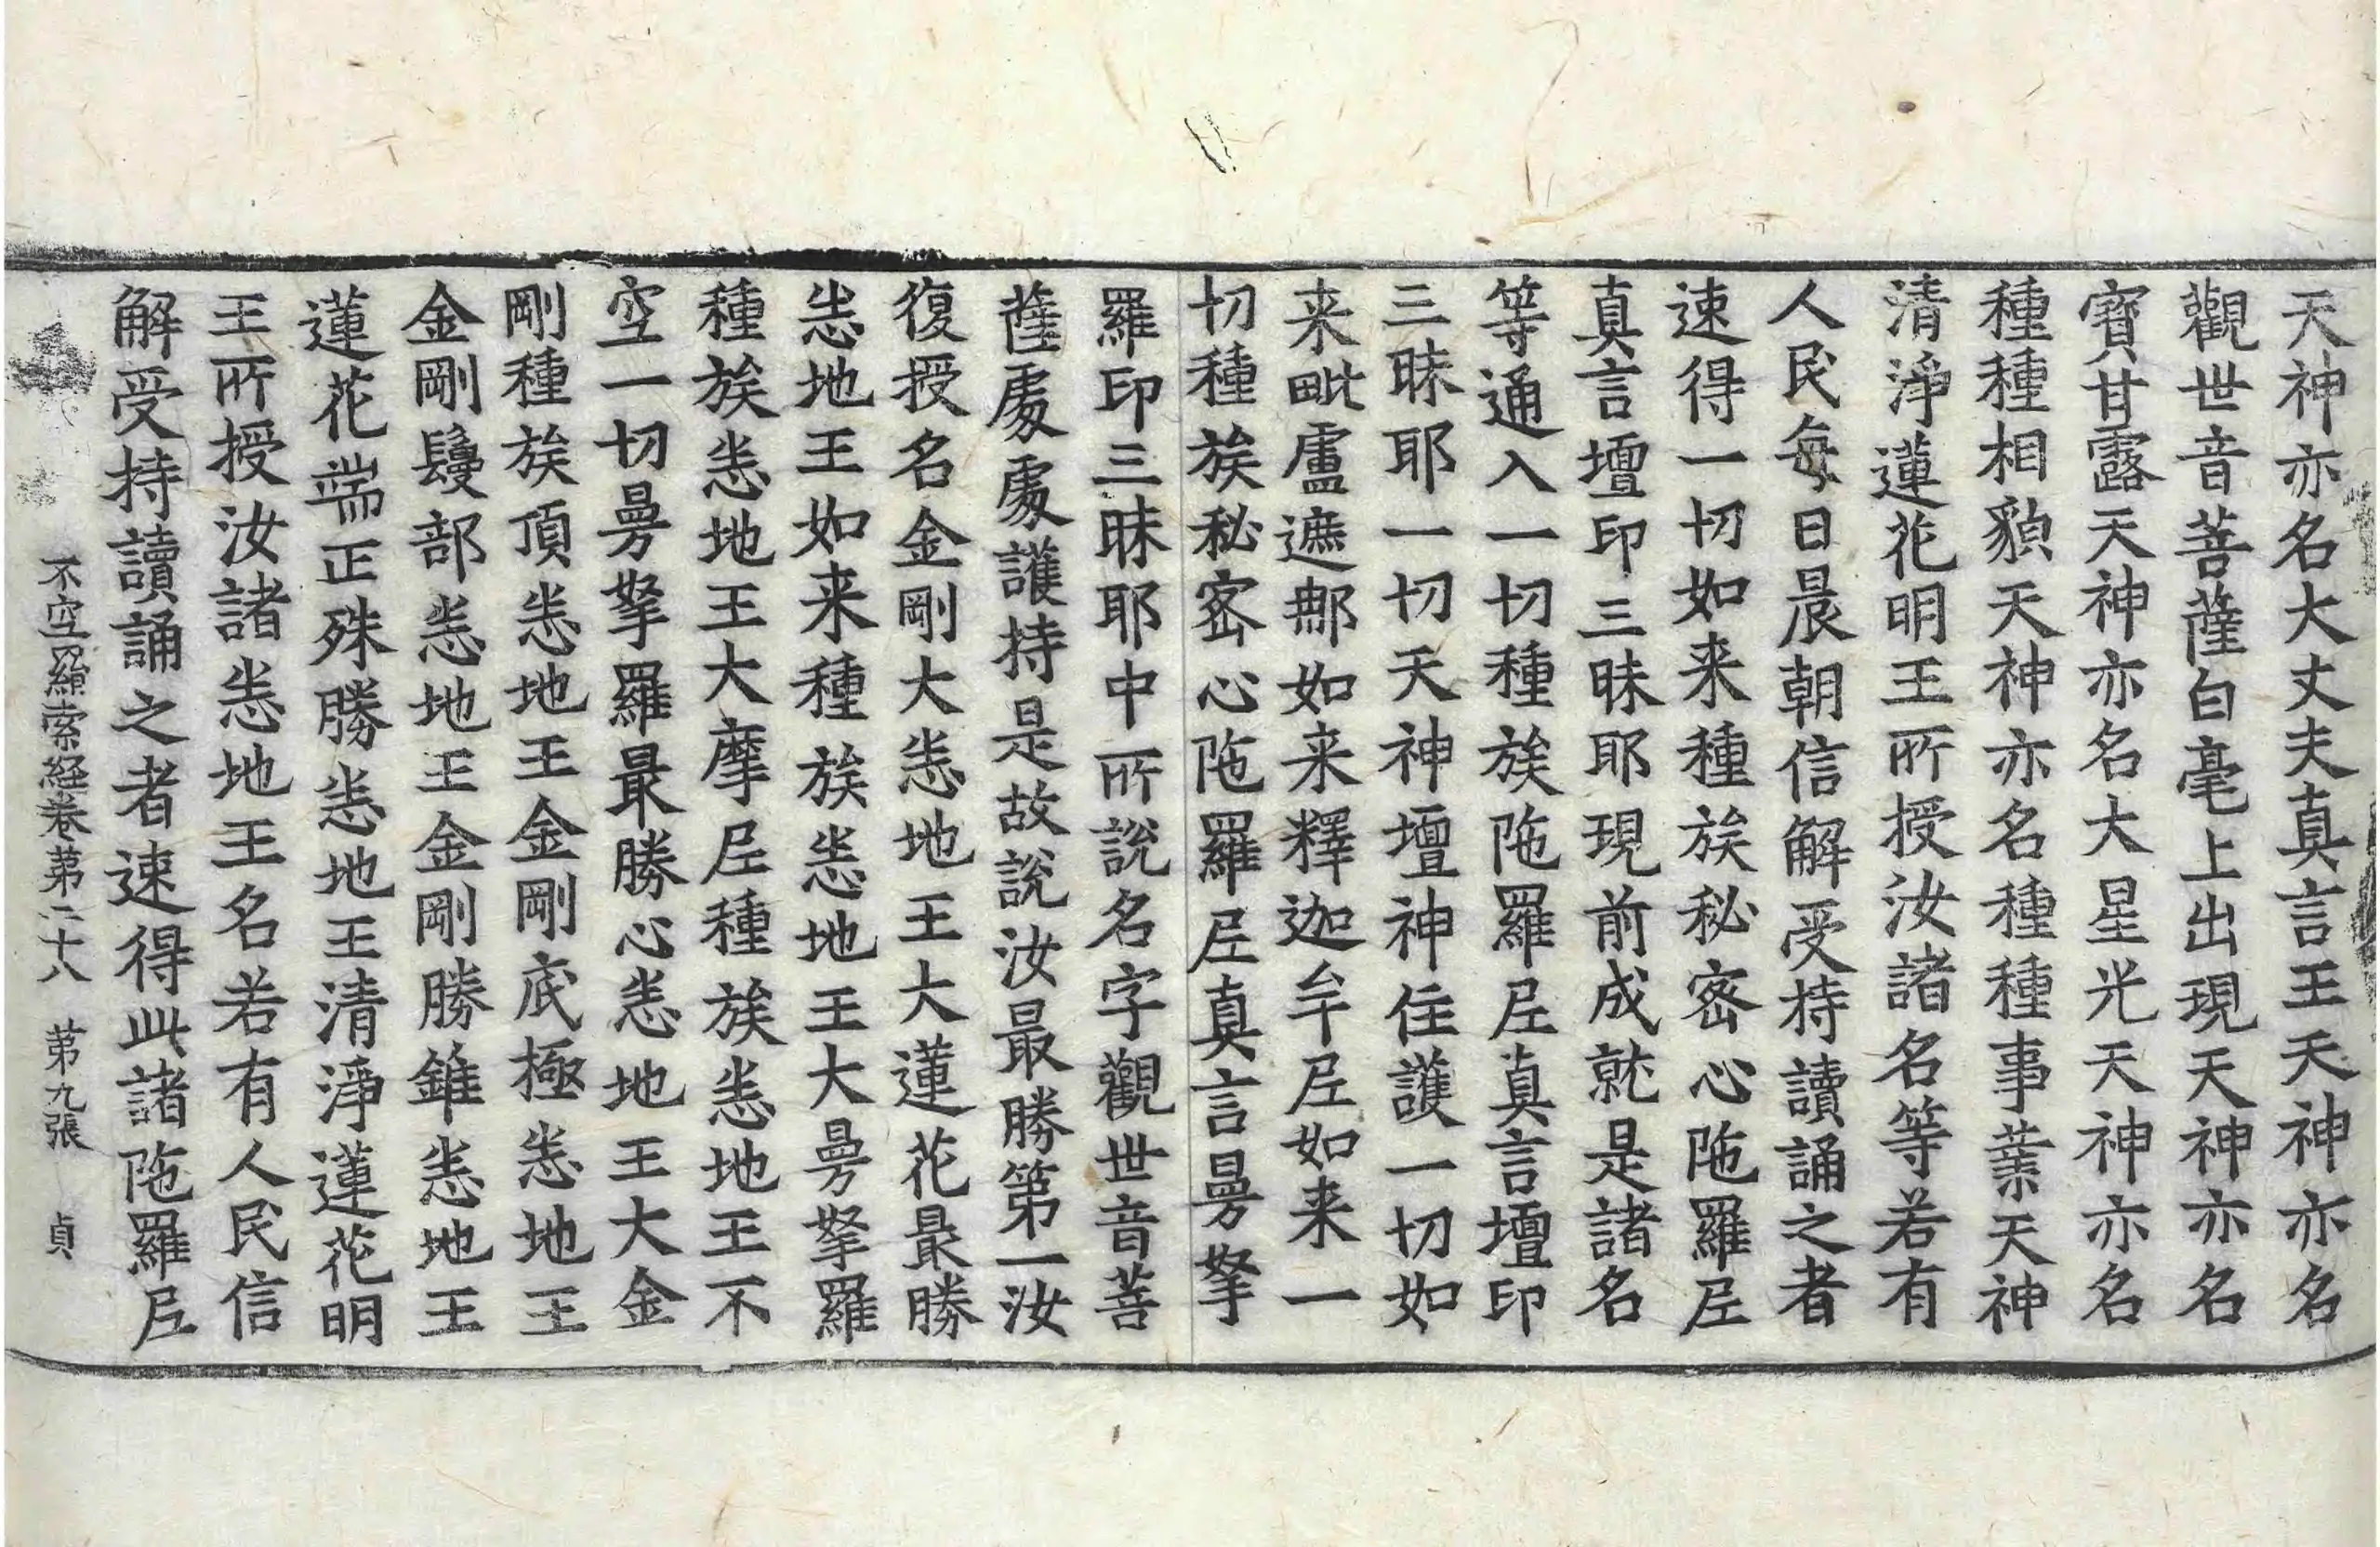 天神亦名大丈夫真言王天神亦名
觀世音菩薩白毫上出現天神亦名
寶甘露天神亦名大星光天神亦名
種種相貌天神亦名種種事業天神
清淨蓮花明王所授汝諸名等若有
人民每日晨朝信解受持讀誦之者
速得一切如来種族秘密心陁羅尼
真言壇印三昧耶現前成就是諸名
等通入一切種族陁羅尼真言壇印
三昧耶一切天神壇神住護一切如
来毗盧遮那如来釋迦牟尼如来一
切種族秘密心陁羅尼真言曼拏
羅印三昧耶中所說名字觀世音菩
薩處處護持是故說汝最勝第一汝
復授名金剛大悉地王大蓮花最勝
悉地王如来種族悉地王大曼拏羅
種族悉地王大摩尼種族悉地王不
空一切曼拏羅最勝心悉地王大金
剛種族頂悉地王金剛底極悉地王
金剛鬘部悉地王金剛勝錐悉地王
蓮花端正殊勝悉地王清淨蓮花明
王所授汝諸悉地王名若有人民信
解受持讀誦之者速得此諸陁羅尼
不空羂索経卷第二十八 第九張 貞